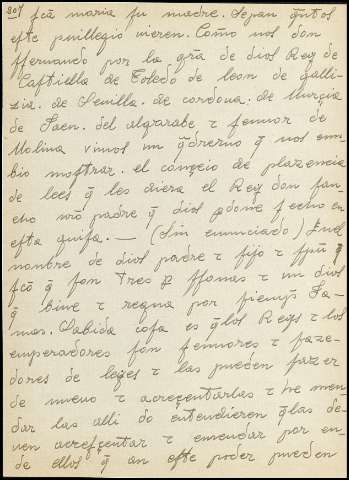 207 fcã maria fu madre. Sepan q̃ntos
efte puillegio vieren. Como nos don
ffernando por la grã de dios Rey de
Caftiella de Toledo de leon de galli-
zia. de Seuilla. de cordoua. de Murçia
de Jaen. del algarabe τ fennor de
Molina vimos un q̃derno q̃ nos em-
bio moftrar. el conçeio de plazencia
de lees q̃ les diera el Rey don fan-
cho nrõ padre q̃ dios pdone fecho en
efta guifa. — (Sin enunciado) End
nombre de dios padre τ fijo τ fpũ
fcõ q̃ fon tres pfonas τ un dios
q̃ biue τ regna por fiemp̃s Ja-
mas. Sabida cofa es q̃los Reys τ los
emperadores fon fennores τ faze-
dores de leyes τ las pueden fazer
de nueuo τ acreçentarlas τ
dar las alli do entendieren q̃las de-
uen acreſçentar τ emendar por en-
de ellos q̃ an efte poder pueden